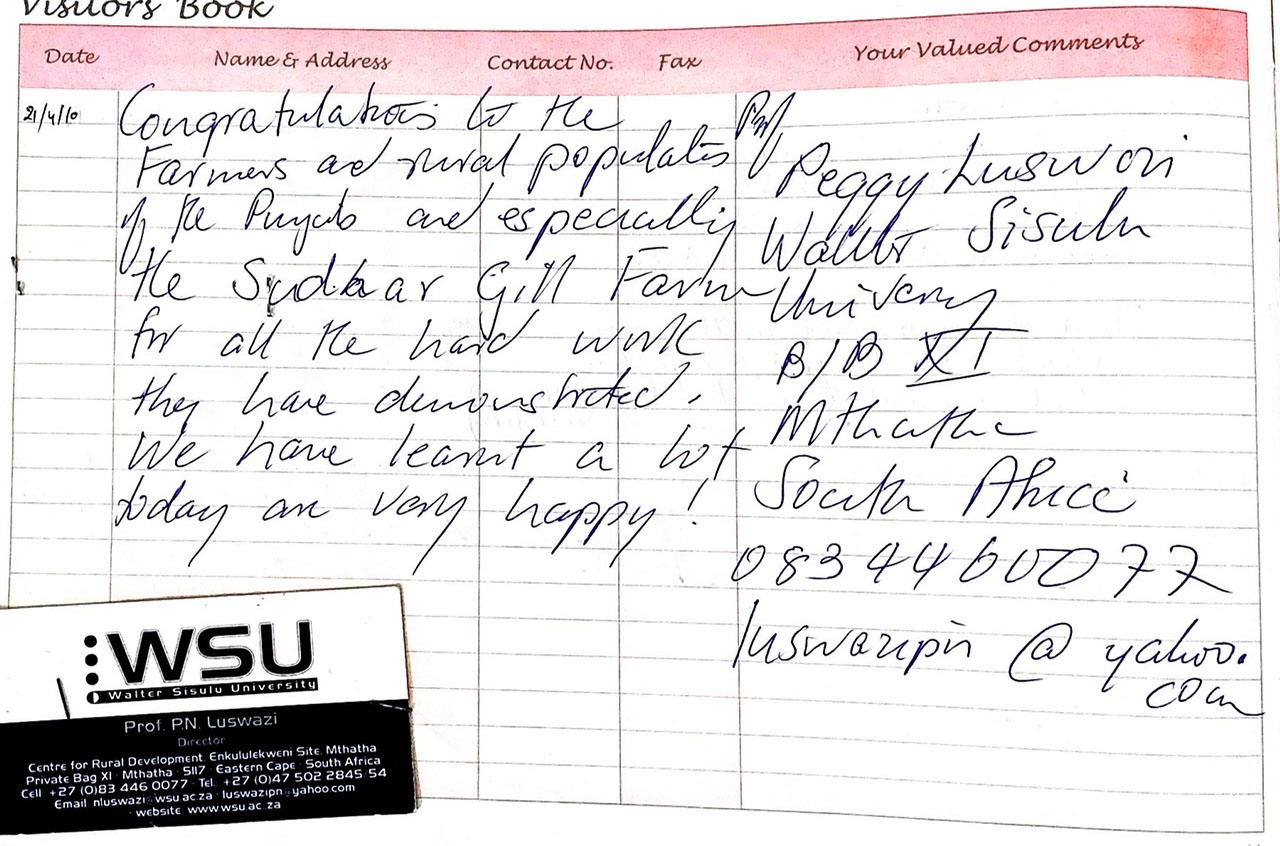 Visitors Book
Date Name & Address Contact No. Fax Your Valued Comments
21/4/10
Congratulations to the
Farmers and rural populates
of the Punjab and especially
the Sudkar Gill Farm
for all the hard work
they have demonstrated.
We have learnt a lot
today are very happy!
Prof
Peggy Luswazi
Walter Sisulu
University
P/B XI
Mthatha
South Africa
083 446 0077
luswazipn @ yahoo.
com
WSU
Walter Sisulu University
Prof. P.N. Luswazi
Director
Centre for Rural Development. Enkululekweni Site. Mthatha
Private Bag XI · Mthatha · 5117 · Eastern Cape · South Africa
Cell +27 (0)83 446 0077 · Tel. +27 (0)47 502 2845/54
Email nluswazi@wsu.ac.za · luswazipn@yahoo.com
· website www.wsu.ac.za